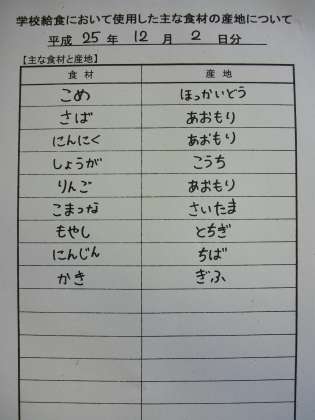 学校給食において使用した主な食材の産地について
平成 25 年 12 月 2 日分
【主な食材と産地】
食材 産地
こめ ほっかいどう
さば あおもり
にんにく あおもり
しょうが こうち
りんご あおもり
こまつな さいたま
もやし とちぎ
にんじん ちば
かき ぎふ